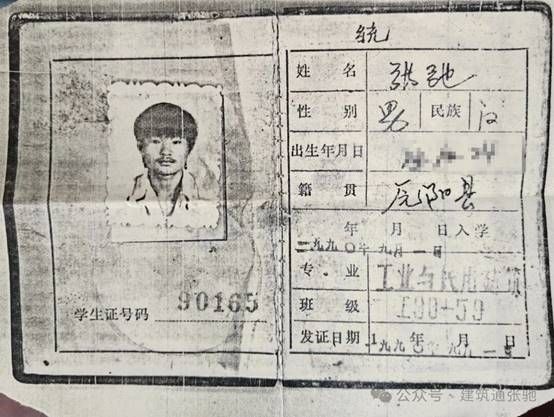 统
姓名 张驰
性别 男 民族 汉
出生年月日
籍贯 原阳县
年 月 日入学
一九九〇年九月一日
专业 工业与民用建筑
班级
发证日期 年 月 日
一九九〇年九月一日
学生证号码 90165
公众号·建筑通张驰